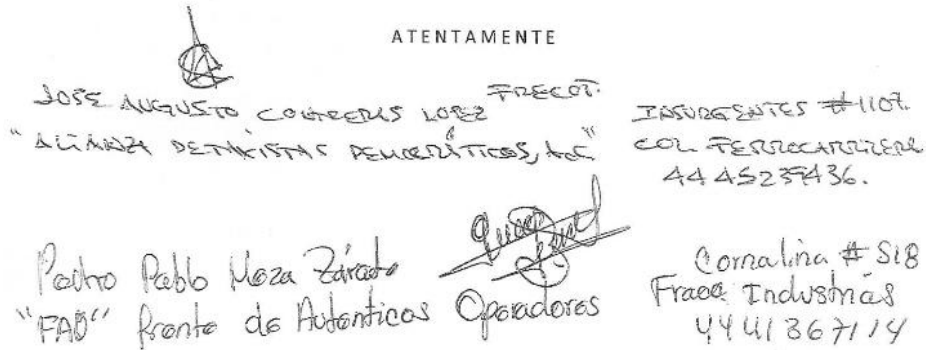 ATENTAMENTE
JOSE AUGUSTO CONTRERAS LOPEZ FRECOT.
"ALIANZA DETALLISTAS DEMOCRÁTICOS, A.C."
INSURGENTES #1107.
COL. FERROCARRILERA
44 45239436.
Pedro Pablo Meza Zárate
"FAO" Frente de Autenticos Operadores
Cornalina # 518
Fracc Industrias
4441367114